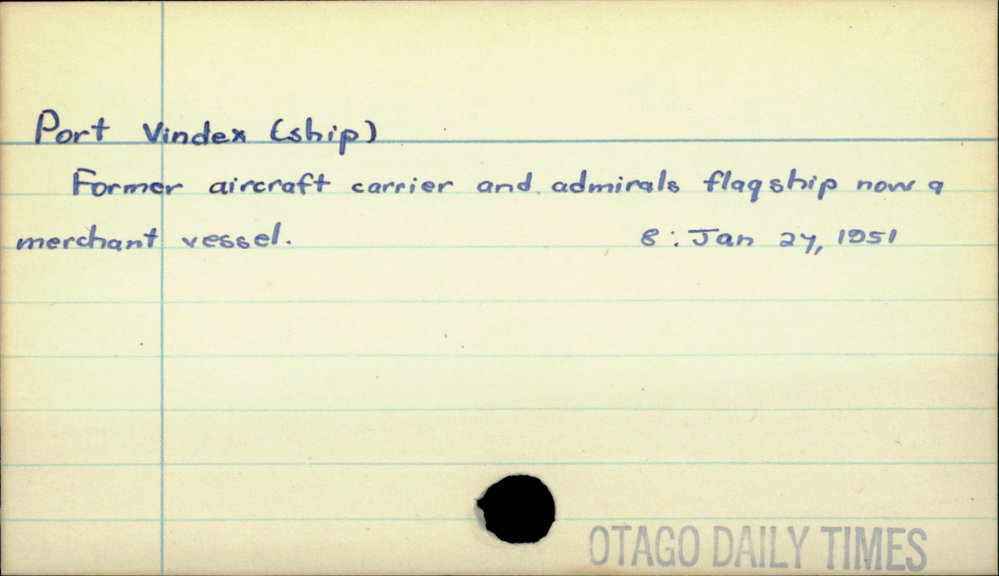 Port Vindex (ship)
Former aircraft carrier and admirals flagship now a
merchant vessel. 8 : Jan 24, 1951
OTAGO DAILY TIMES